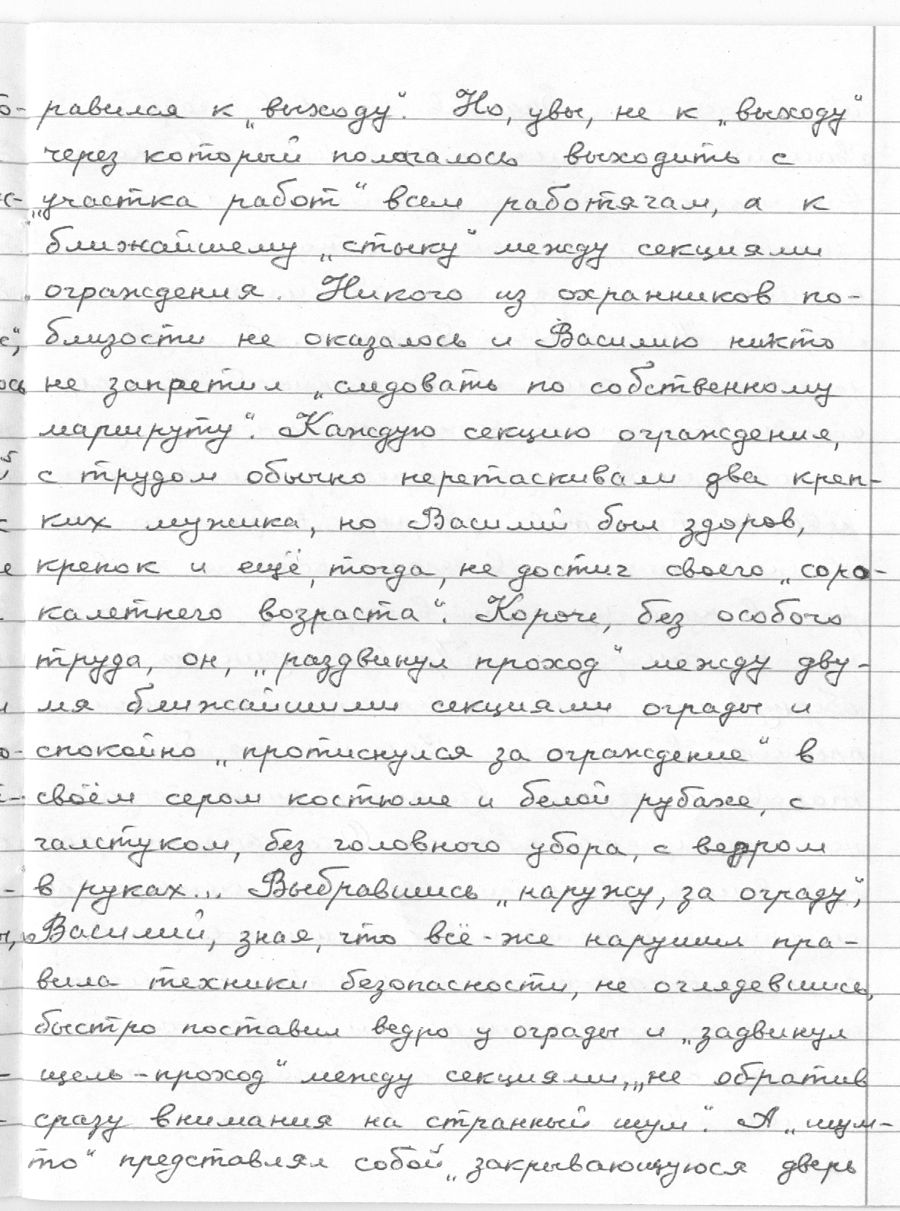 равился к „выходу“. Но, увы, не к „выходу“
через который полагалось выходить с
„участка работ“ всем работягам, а к
ближайшему „стыку“ между секциями
ограждения. Никого из охранников по-
близости не оказалось и Василию никто
не запретил „следовать по собственному
маршруту“. Каждую секцию ограждения,
с трудом обычно перетаскивали два креп-
ких мужика, но Василий был здоров,
крепок и ещё, тогда, не достиг своего „соро-
калетнего возраста“. Короче, без особого
труда, он, „раздвинул проход“ между дву-
мя ближайшими секциями ограды и
спокойно „протиснулся за ограждение“ в
своём сером костюме и белой рубахе, с
галстуком, без головного убора, с ведром
в руках... Выбравшись „наружу, за ограду“,
Василий, зная, что всё-же нарушил пра-
вила техники безопасности, не оглядевшись,
быстро поставил ведро у ограды и „задвинул
щель-проход“ между секциями, „не обратив
сразу внимания на странный шум“. А „шум-
то“ представлял собой „закрывающуюся дверь